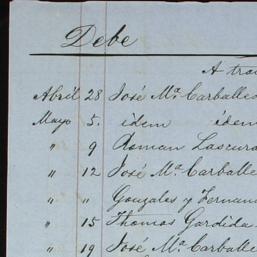 Debe
A tra
Abril 28 José Mª. Carballe
Mayo 5. idem idem
" 9 Roman Lascura
" 12 José Mª. Carballe
" " Gonzales y Fernan
" 15 Thomas Gardida
" 19 José Mª. Carballe